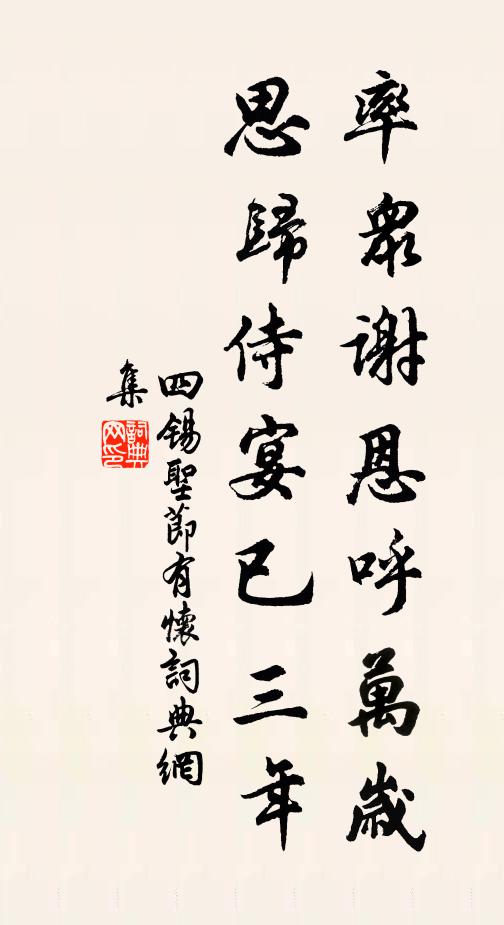 率衆謝恩呼萬歲
思歸侍宴已三年
四錫聖節有懷詞典網
集
詞典網印